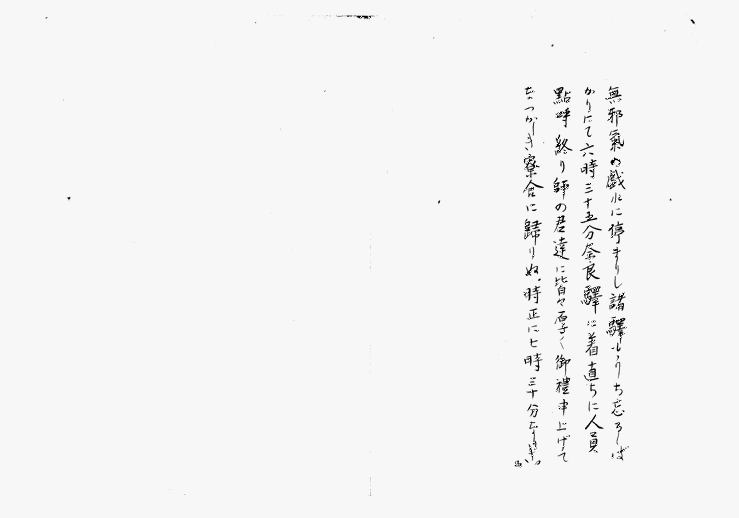 無邪氣な戯れに停まりし諸驛もうち忘るゝば
かりにて六時三十五分奈良驛に着直ちに人員
點呼終り師の君達に皆々厚く御禮申上げて
なつかしき寮舎に歸りぬ。時正に七時三十分なりき。